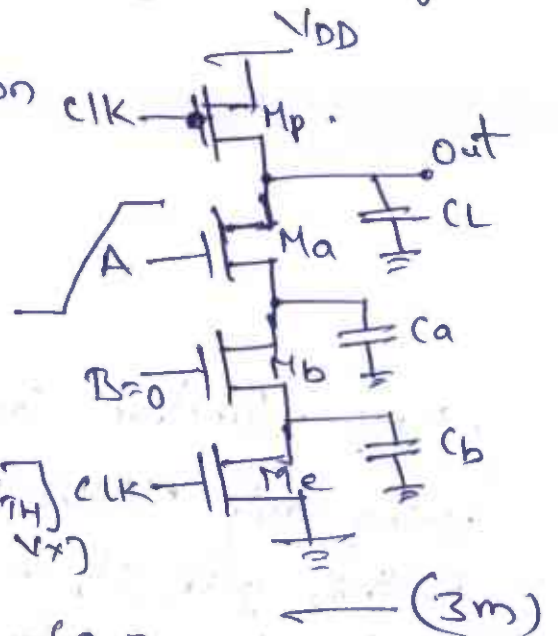 VDD
on
Clk
Mp.
Out
CL
A
Ma
Ca
B=0
Mb
Cb
TH)
Vx)
Clk
Me
(3m)